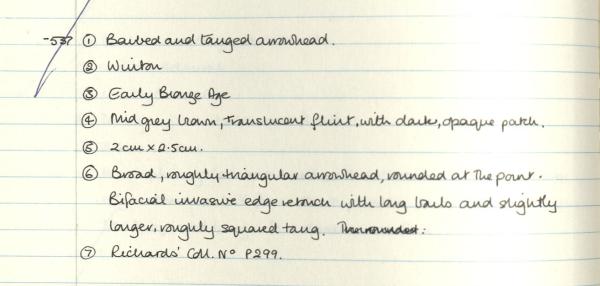 -537 ① Barbed and tanged arrowhead.
② Winton
③ Early Bronze Age
④ Mid grey brown, translucent flint, with dark, opaque patch.
⑤ 2cm x 2.5cm.
⑥ Broad, roughly triangular arrowhead, rounded at the point.
Bifacial invasive edge retouch with long barbs and slightly
longer, roughly squared tang.
⑦ Richards' Coll. No P299.